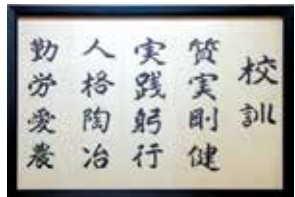 校訓
質実剛健
実践躬行
人格陶冶
勤労愛農